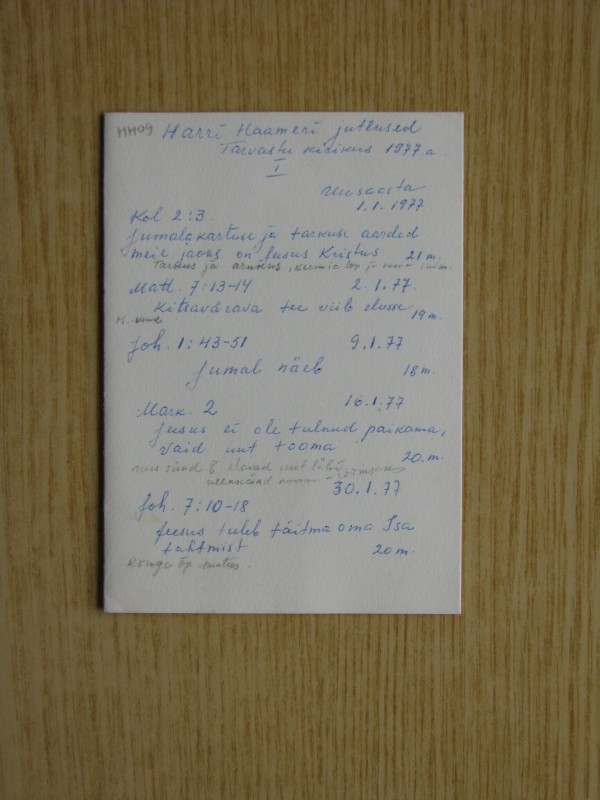 HH09 Harri Haameri jutlused
Tarvastu kirikus 1977.a.
I
Uusaasta
1.1.1977
Kol 2:3.
Jumalakartuse ja tarkuse aarded
meie jaoks on Jeesus Kristus 21 m.
Tarkus ja
Matt. 7:13-14 2.1.77.
Kitsavärava tee viib elusse 19 m.
Joh. 1:43-51 9.1.77
Jumal näeb 18 m.
Mark. 2 16.1.77
Jeesus ei ole tulnud paikama,
vaid uut tooma 20.m.
uut läbi
30.1.77
Joh. 7:10-18
Jeesus tuleb täitma oma Isa
tahtmist 20 m.